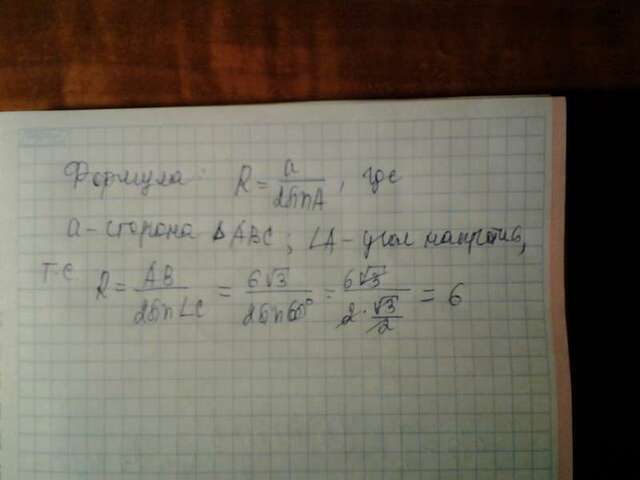 Формула: R = a / 2SinA, где
a - сторона ΔABC; ∠A - угол напротив,
т.е. R = AB / 2Sin∠C = 6√3 / 2Sin60° = 6√3 / 2·√3/2 = 6